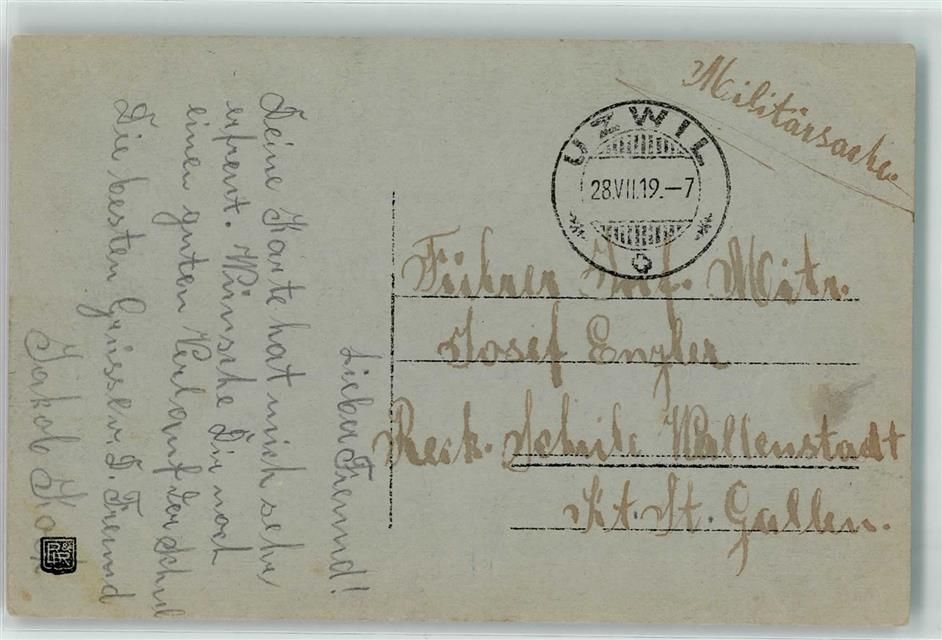 Militärsache.
UZWIL
28.VII.19.–7
Führer Inf. Mitr.
Josef Enzler
Reck. Schule Wallenstadt
Kt. St. Gallen.
Lieber Freund!
Deine Karte hat mich sehr
erfreut. Wünsche Dir noch
einen guten Verlauf der Schul
Die besten Grüsse v. D. Freund
Jakob